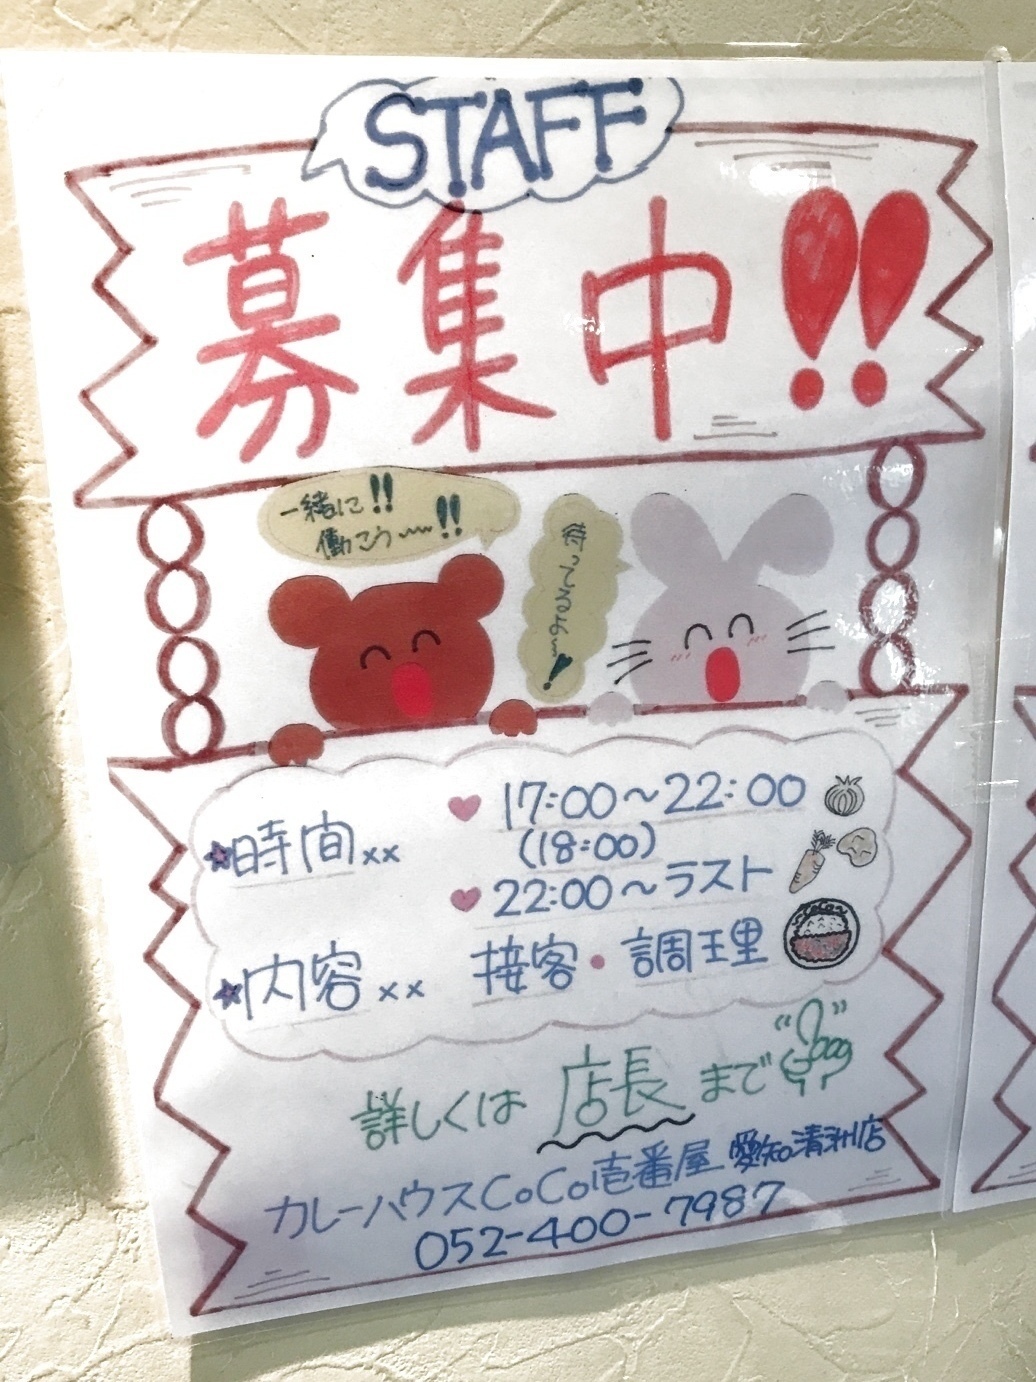 STAFF
募集中!!
一緒に!!
働こう〰!!
待ってるよ〜!
★時間××
♥ 17:00〜22:00
(18:00)
♥ 22:00〜ラスト
★内容×× 接客・調理
詳しくは 店長 まで
カレーハウスCoCo壱番屋 愛知清洲店
052-400-7987